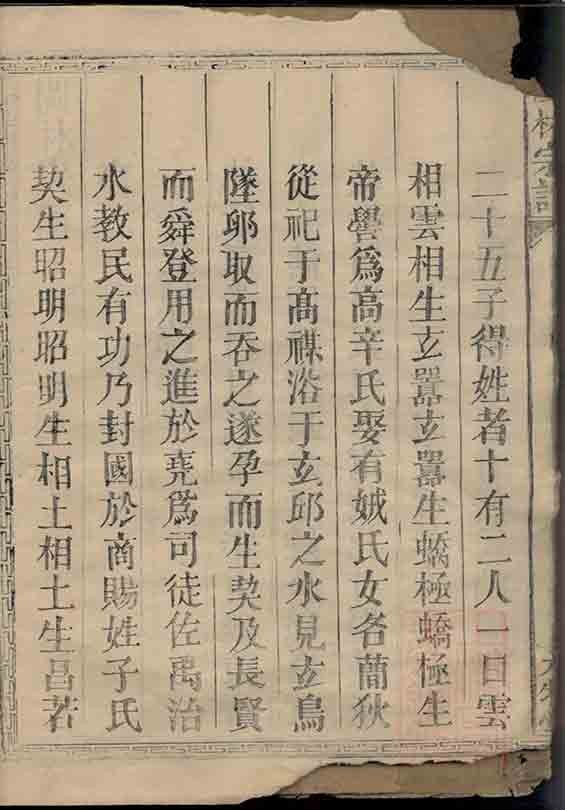 二十五子得姓者十有二人一曰雲
相雲相生玄囂玄囂生蟜極蟜極生
帝嚳爲高辛氏娶有娀氏女名蕳狄
從祀于高禖浴于玄邱之水見玄鳥
墜卵取而吞之遂孕而生契及長賢
而舜登用之進於堯爲司徒佐禹治
水教民有功乃封國於商賜姓子氏
契生昭明昭明生相土相土生昌若
林宗譜